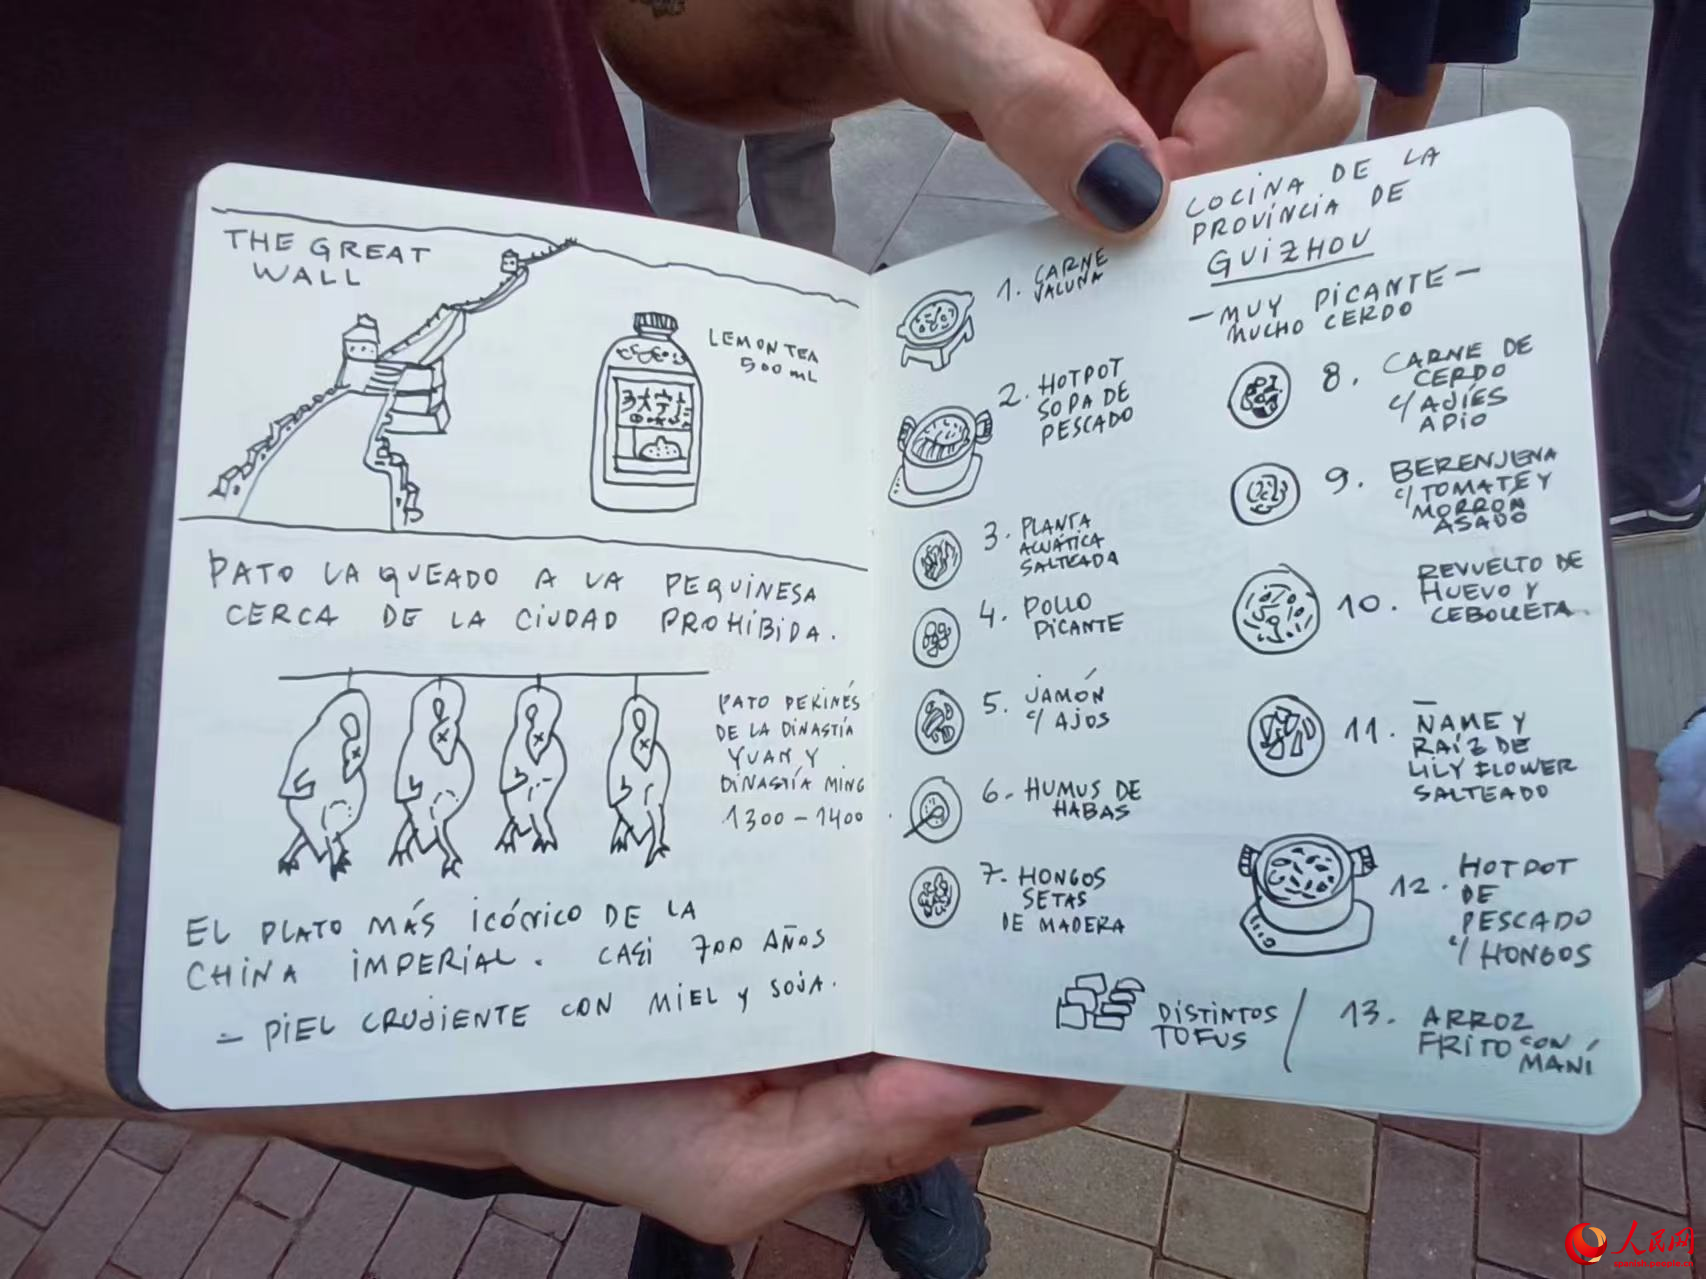 THE GREAT
WALL
LEMON TEA
500 ML
PATO LAQUEADO A LA PEQUINESA
CERCA DE LA CIUDAD PROHIBIDA.
PATO PEKINÉS
DE LA DINASTÍA
YUAN Y
DINASTÍA MING
1300 - 1400
EL PLATO MÁS ICÓNICO DE LA
CHINA IMPERIAL. CASI 700 AÑOS
- PIEL CRUJIENTE CON MIEL Y SOJA.
COCINA DE LA
PROVINCIA DE
GUIZHOU
- MUY PICANTE -
MUCHO CERDO
1. CARNE
VACUNA
2. HOTPOT
SOPA DE
PESCADO
3. PLANTA
ACUÁTICA
SALTEADA
4. POLLO
PICANTE
5. JAMÓN
C/ AJOS
6. HUMUS DE
HABAS
7. HONGOS
SETAS
DE MADERA
DISTINTOS
TOFUS
8. CARNE DE
CERDO
C/ AJÍES
APIO
9. BERENJENA
C/ TOMATE Y
MORRÓN
ASADO
10. REVUELTO DE
HUEVO Y
CEBOLLETA
11. ÑAME Y
RAÍZ DE
LILY FLOWER
SALTEADO
12. HOTPOT
DE
PESCADO
C/ HONGOS
13. ARROZ
FRITO CON
MANÍ
人民网
spanish.people.cn